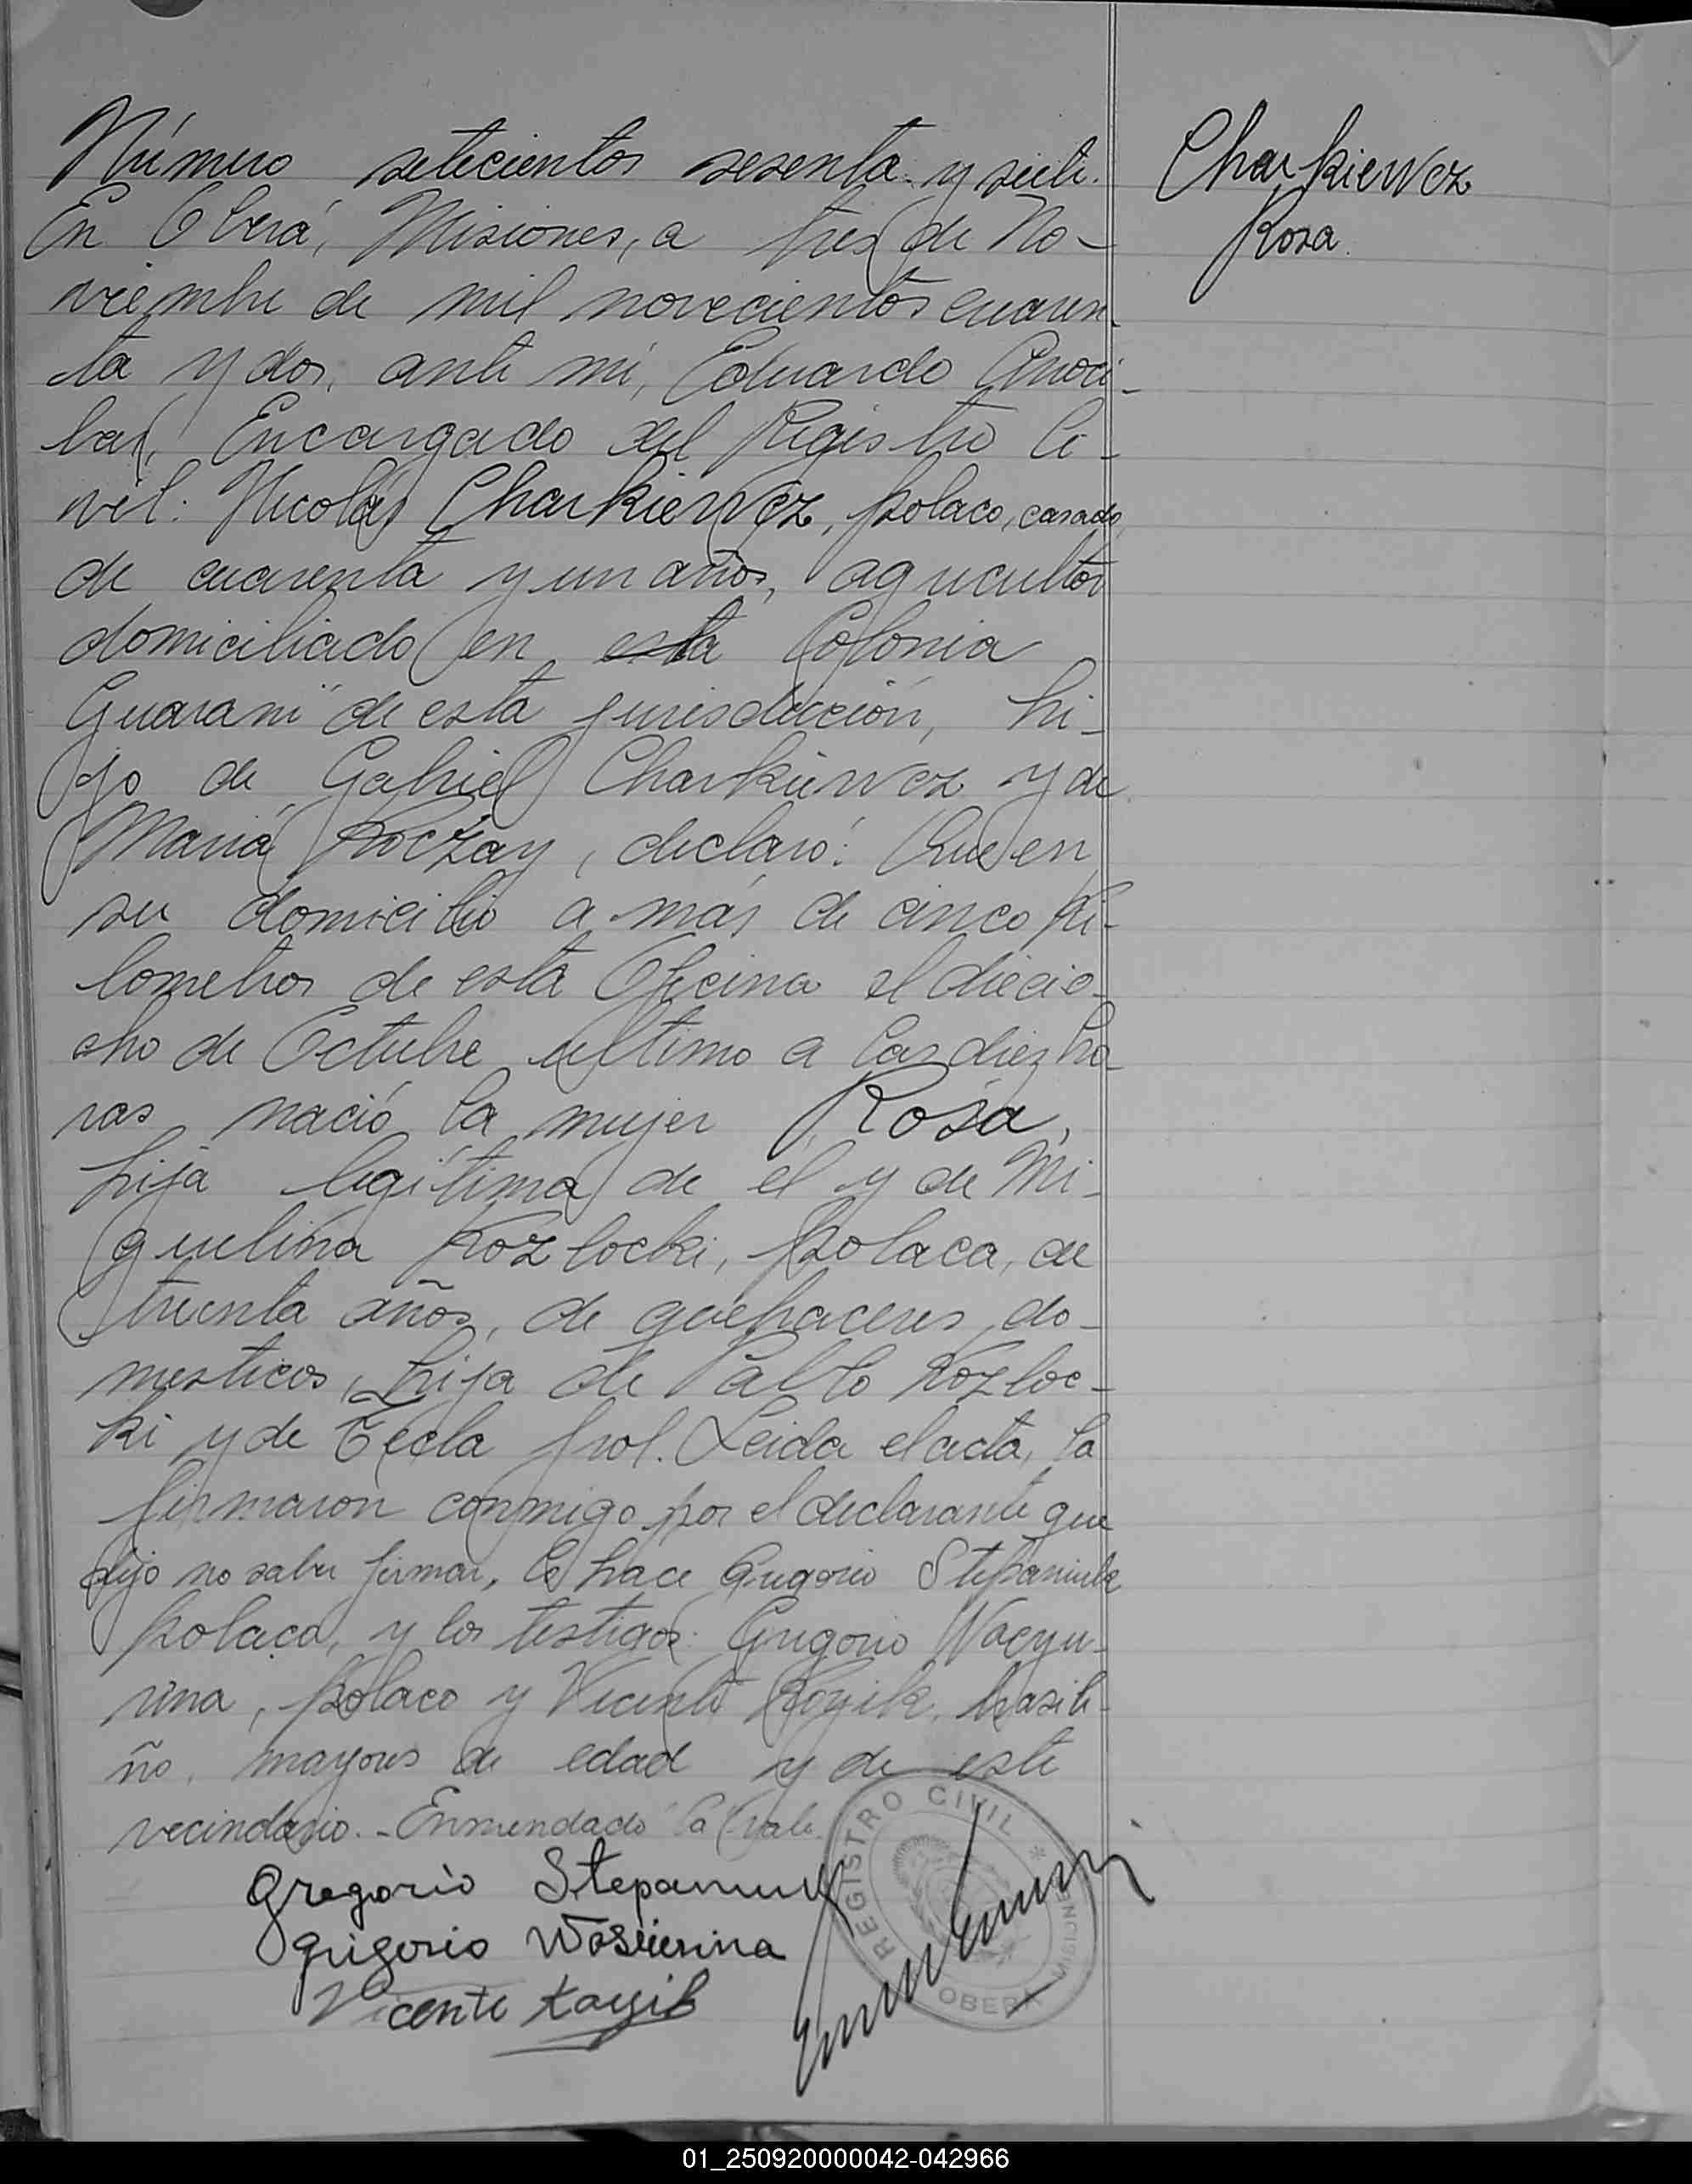 Número setecientos sesenta y siete.
En Oberá, Misiones, a tres de No-
viembre de mil novecientos cuaren-
ta y dos, ante mí, Eduardo Anoci-
bar, Encargado del Registro Ci-
vil: Nicolás Charkiewcz, polaco, casado,
de cuarenta y un años, agricultor
domiciliado en esta Colonia
Guaraní de esta jurisdicción, hi-
jo de Gabriel Charkiewcz y de
María Koczay, declaró: Que en
su domicilio a más de cinco ki-
lometros de esta Oficina el diecio-
cho de Octubre ultimo a las diez ho-
ras nació la mujer Rosa,
hija legítima de él y de Mi-
guelina Kozlocki, polaca, de
treinta años, de quehaceres do-
mesticos, hija de Pablo Kozloc-
ki y de Tecla Frol. Leida el acta, la
firmaron conmigo por el declarante que
dijo no saber firmar, lo hace Gregorio Stepaniuk
polaco, y los testigos: Gregorio Wacyu-
rina, polaco y Vicente Koyik, brasile-
ño, mayores de edad y de este
vecindario.- Enmendado la vale.
Gregorio Stepaniuk
Grigorio
Vicente Koyik
Charkiewcz
Rosa.
REGISTRO CIVIL * MISIONES
OBERA
01_250920000042-042966